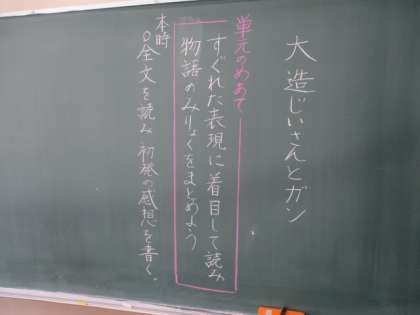 大造じいさんとガン
単元のめあて
すぐれた表現に着目して読み
物語のみりょくをまとめよう
本時
○全文を読み 初発の感想を書く。